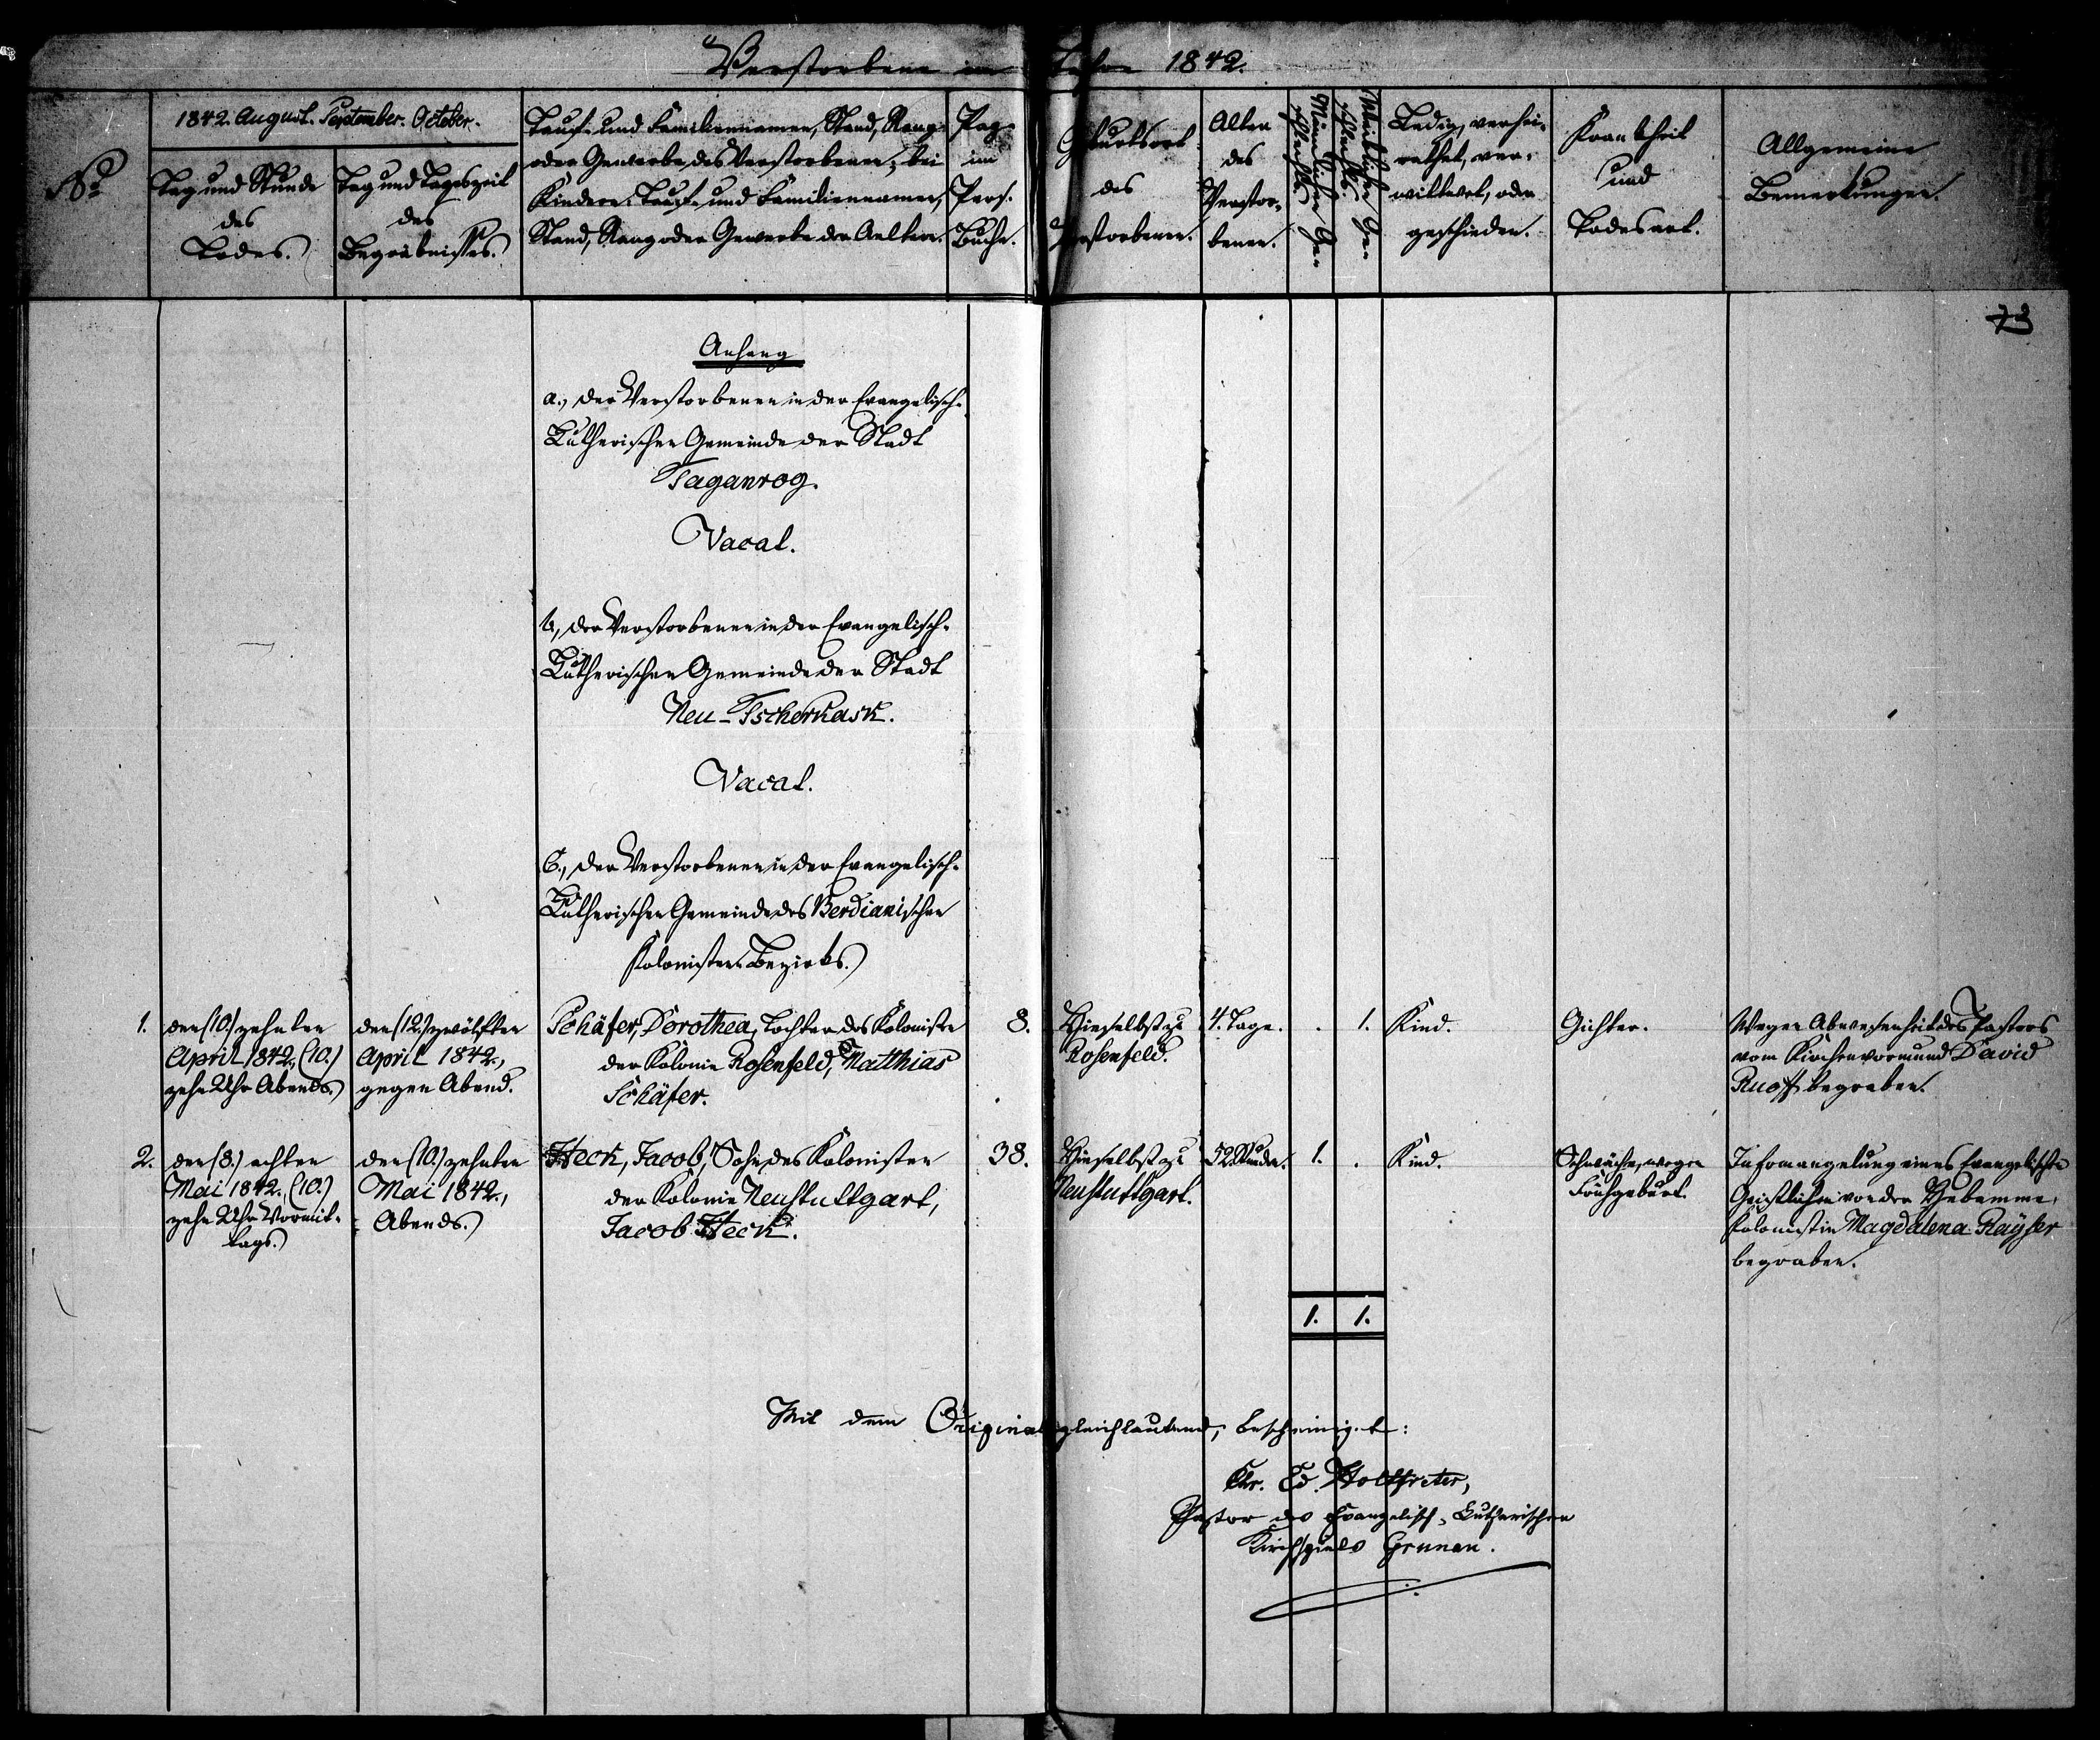 Verstorbene im Jahre 1842.
No
1842. August. September. October.
Tag und Stunde
des
Todes.
Tag und Tageszeit
des
Begräbnisses.
Tauf- und Familiennamen, Stand, Rang
oder Gewerbe des Verstorbenen; bei
Kindern Tauf- und Familiennamen,
Stand, Rang oder Gewerbe der Aeltern.
Pag.
im
Pers.
Buche.
Geburtsort
des
Verstorbenen.
Alter
des
Verstor-
benen.
Männlichen Ge-
schlechts.
Weiblichen Ge-
schlechts.
Ledig, verhei-
rathet, ver-
wittwet, oder
geschieden.
Krankheit
und
Todesart.
Allgemeine
Bemerkungen.
73
Anhang
a., der Verstorbenen in der Evangelisch-
Lutherischen Gemeinde der Stadt
Taganrog.
Vacat.
b., der Verstorbenen in der Evangelisch-
Lutherischen Gemeinde der Stadt
Neu-Tscherkask.
Vacat.
C., der Verstorbenen in der Evangelisch-
Lutherischen Gemeinde des Berdianischen
Kolonisten Bezirks.
1.
den (10.) zehnten
April 1842, (10.)
zehn Uhr Abends.
den (12.) zwölften
April 1842.,
gegen Abend.
Schäfer, Dorothea, Tochter des Kolonisten
der Kolonie Rosenfeld, Matthias
Schäfer.
8.
Hieselbst zu
Rosenfeld.
4. Tage.
.
1.
Kind.
Gichter.
Wegen Abwesenheit des Pastors
vom Kirchenvormund David
Ruoff begraben.
2.
den (8.) achten
Mai 1842., (10.)
zehn Uhr Vormit-
tags.
den (10.) zehnten
Mai 1842.,
Abends.
Heck, Jacob, Sohn des Kolonisten
der Kolonie Neustuttgart,
Jacob Heck.
38.
Hieselbst zu
Neustuttgart.
32 Stunden.
1.
.
Kind.
Schwäche, wegen
Frühgeburt.
In Ermangelung eines Evangelischen
Geistlichen von der Hebamme,
Kolonistin Magdalena Rayser
begraben.
1.
1.
Mit dem Original gleichlautend, bescheinigt:
Chr. Ed. Holtfreter,
Pastor des Evangelisch-Lutherischen
Kirchspiels Grunau.